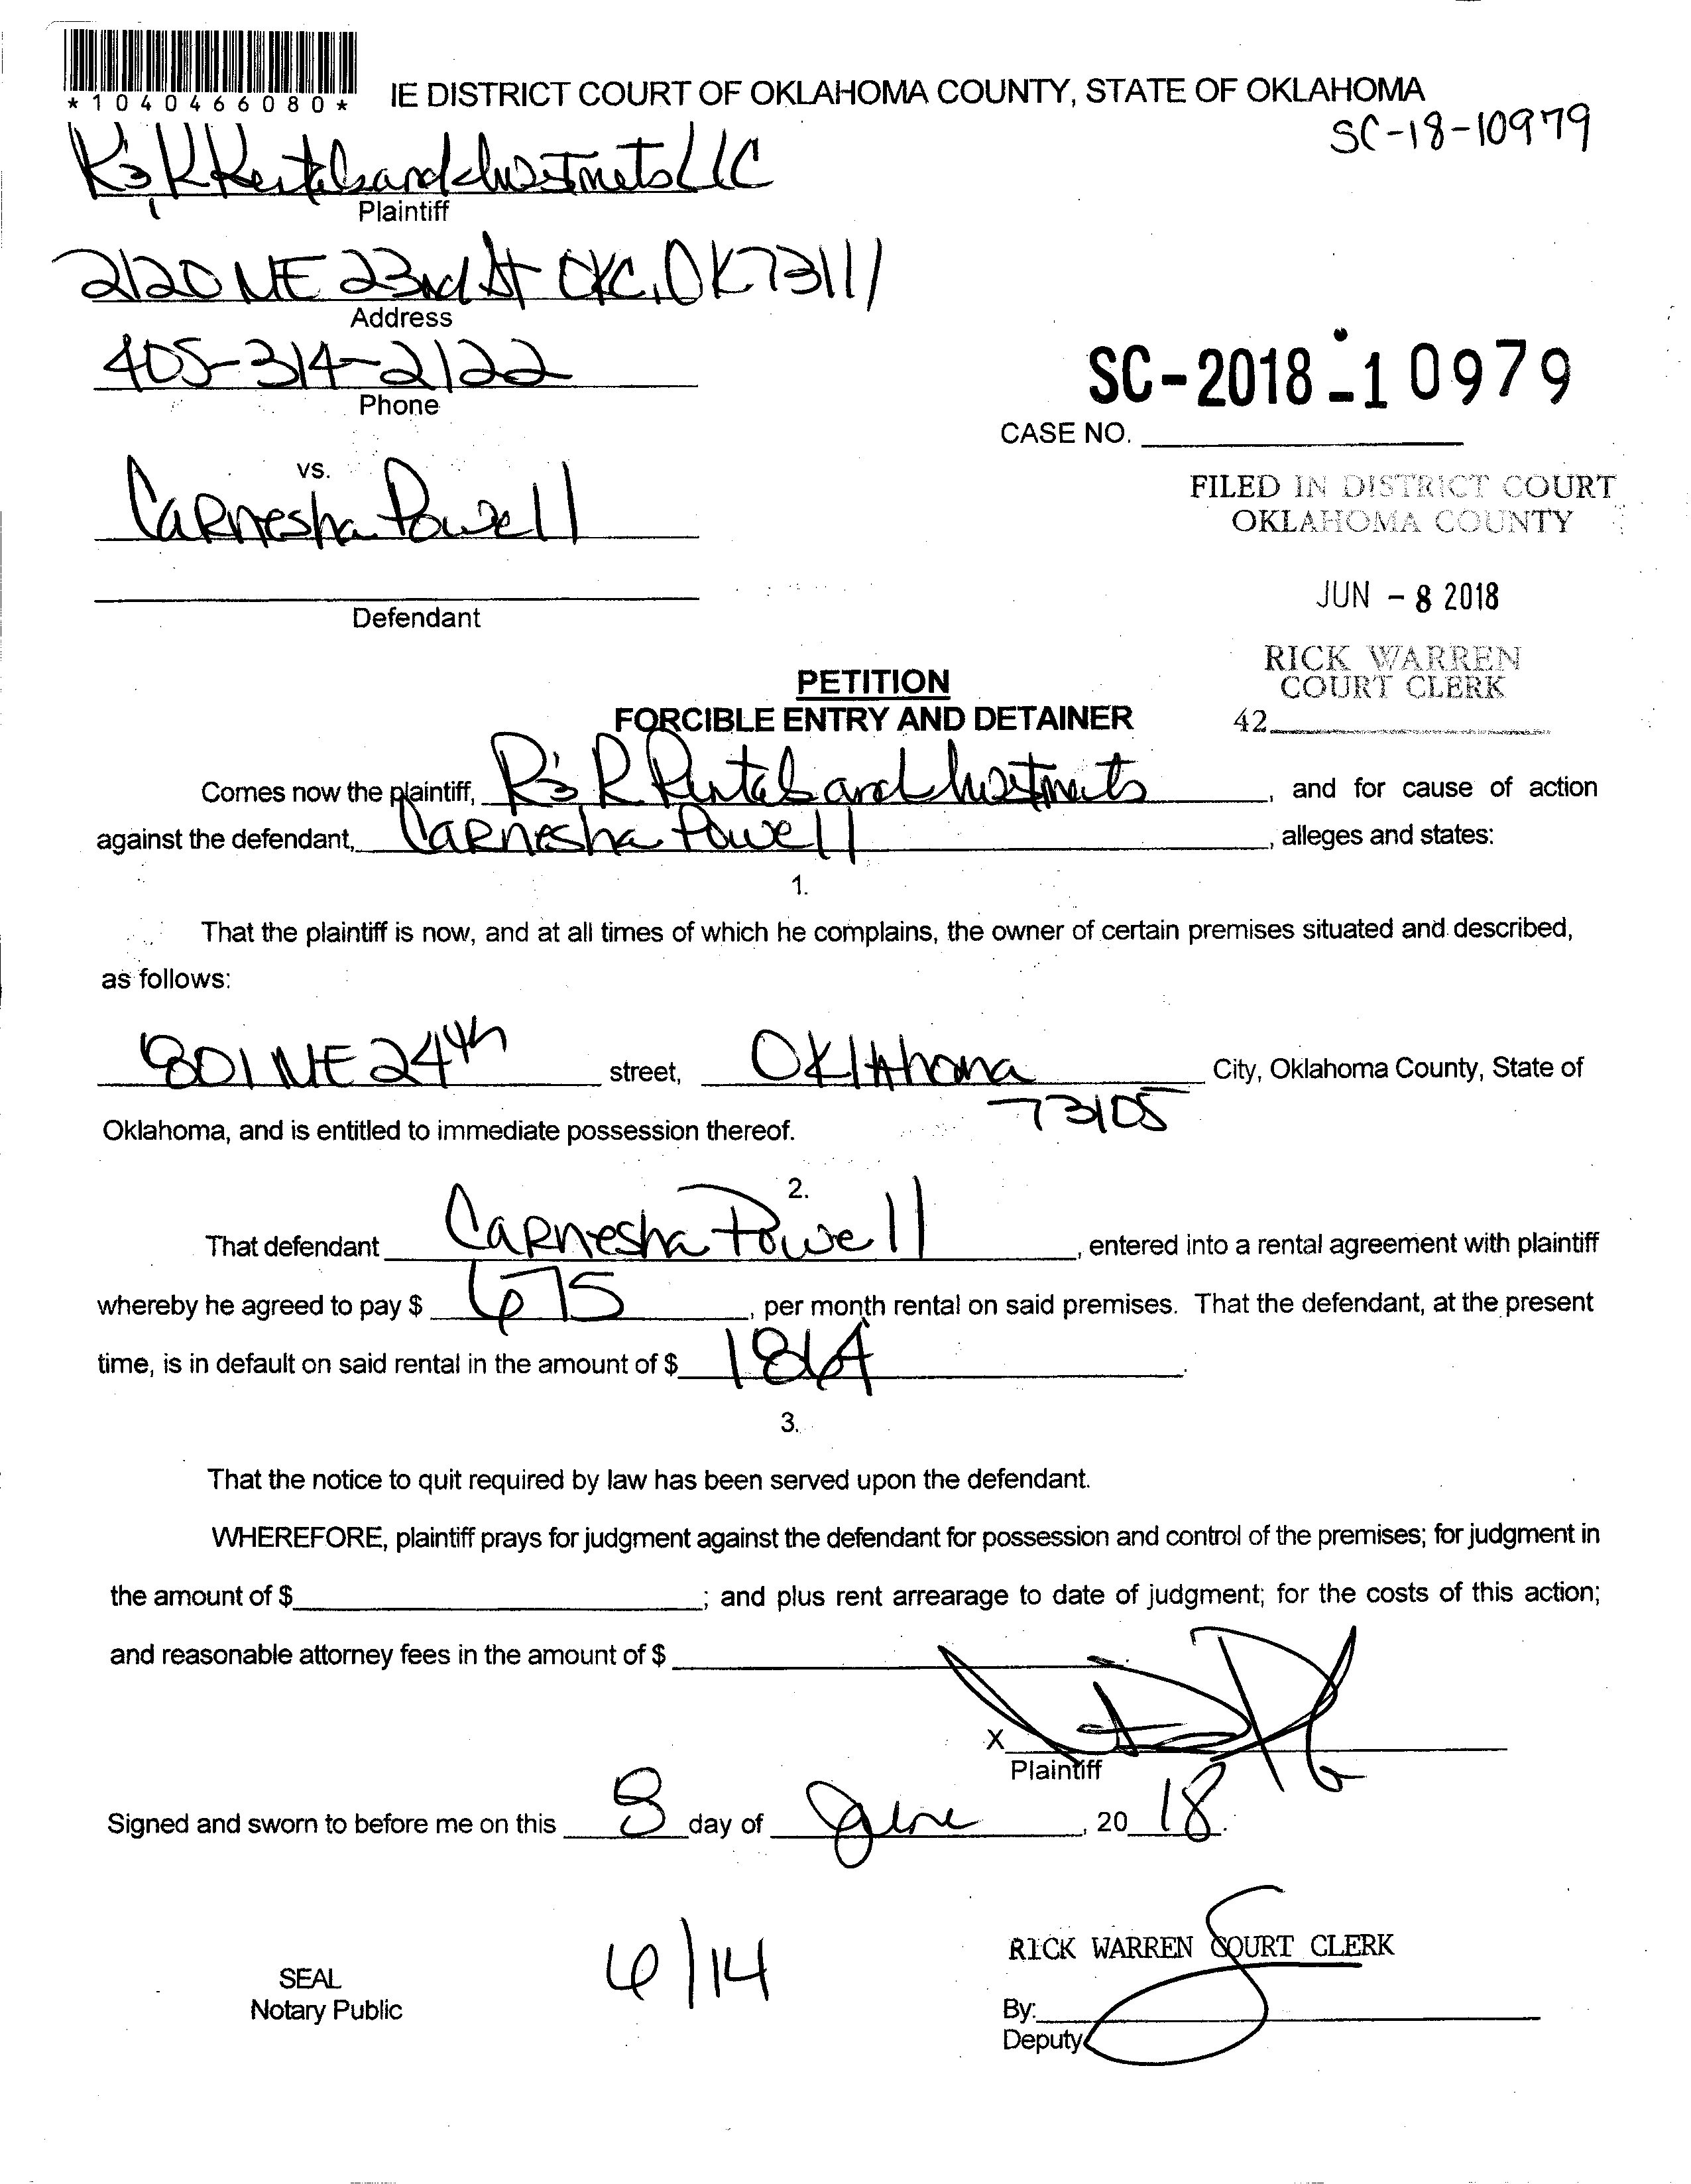 *1040466080*
IE DISTRICT COURT OF OKLAHOMA COUNTY, STATE OF OKLAHOMA
SC-18-10979
R's R Rentals and Investmets LLC
Plaintiff
2120 NE 23rd St OKC, OK 73111
Address
405-314-2122
Phone
SC-2018-10979
CASE NO.
vs.
Carnesha Powell
FILED IN DISTRICT COURT
OKLAHOMA COUNTY
JUN - 8 2018
Defendant
RICK WARREN
COURT CLERK
42
PETITION
FORCIBLE ENTRY AND DETAINER
Comes now the plaintiff, R's R Rentals and Investmets, and for cause of action
against the defendant, Carnesha Powell, alleges and states:
1.
That the plaintiff is now, and at all times of which he complains, the owner of certain premises situated and described,
as follows:
801 NE 24th street, Oklahoma City, Oklahoma County, State of
73105
Oklahoma, and is entitled to immediate possession thereof.
2.
That defendant Carnesha Powell, entered into a rental agreement with plaintiff
whereby he agreed to pay $ 675, per month rental on said premises. That the defendant, at the present
time, is in default on said rental in the amount of $ .
3.
That the notice to quit required by law has been served upon the defendant.
WHEREFORE, plaintiff prays for judgment against the defendant for possession and control of the premises; for judgment in
the amount of $ ; and plus rent arrearage to date of judgment; for the costs of this action;
and reasonable attorney fees in the amount of $
X
Plaintiff
Signed and sworn to before me on this 8 day of June, 20 18.
6/14
RICK WARREN COURT CLERK
SEAL
Notary Public
By:
Deputy